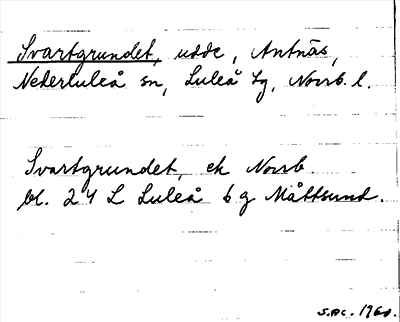 Svartgrundet, udde, Antnäs,
Nederluleå sn, Luleå tg, Norrb. l.
Svartgrundet, ek Norrb.
bl. 24 L Luleå 6 g Måttsund.
1960.